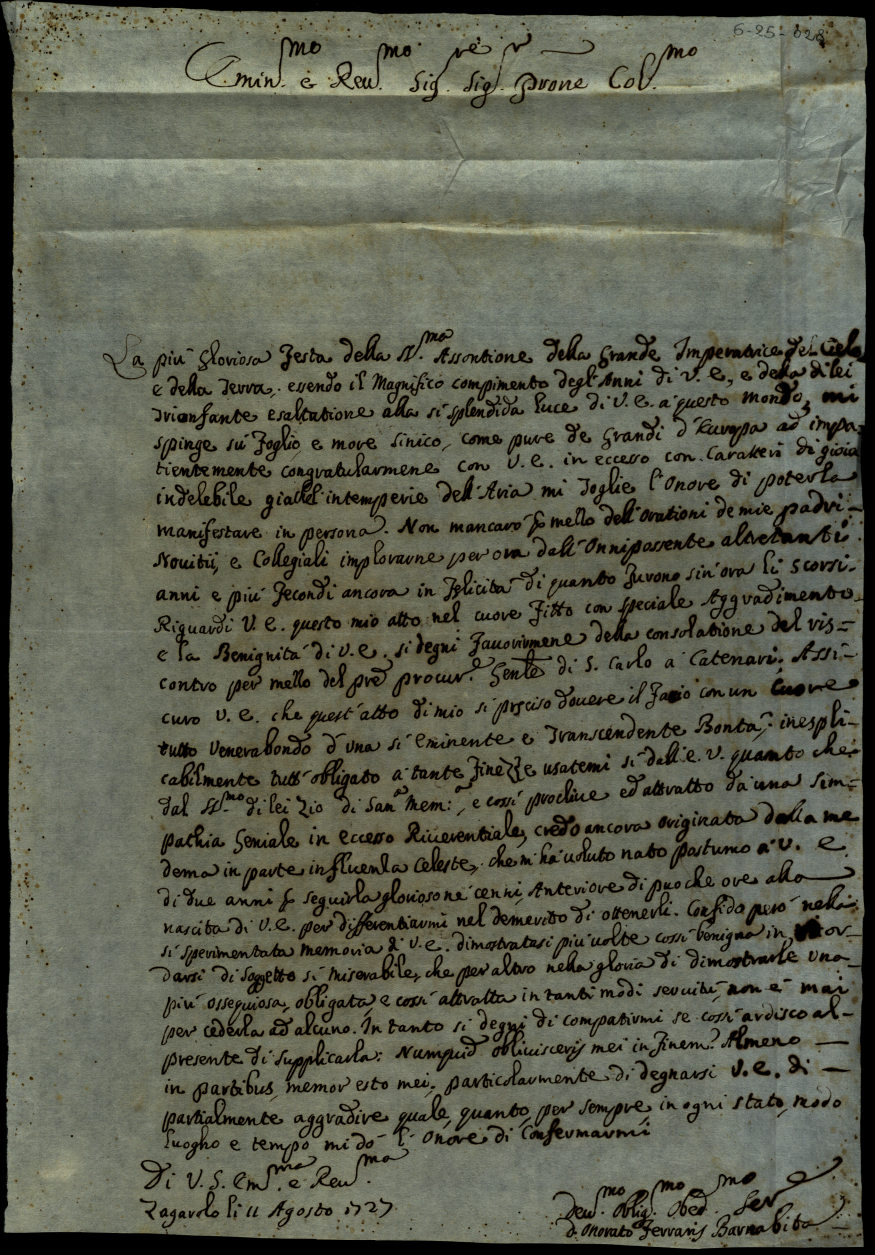 6-25-028
Emin.mo e Reu.mo Sig.re Sig.r Prone Col.mo
La più Gloriosa Festa della SS.ma Assontione della Grande Imperatrice del Cielo
e della Terra, essendo il Magnifico compimento degl'Anni di V. E., e della di lei
Trionfante esaltatione alla sì splendida luce di V. E. a questo mondo, mi
spinge sù Foglio, e more Sinico, come pure de Grandi d'Europa ad impa-
tientemente congratularmene con V. E. in eccesso con Caratteri di gioia
indelebile, l'intemperie dell'Aria mi toglie l'Onore di poterla
manifestare in persona. Non mancarò mello dell'Orationi de miei Padri
Novitij, e Collegiali implorarne per ora dall'Onnipossente altretanti
anni e più Fecondi ancora in Felicità di quanto furono sin'ora li scorsi.
Riguardi V. E. questo mio atto nel cuore Fitto con speciale Aggradimento
e la Benignità di V. E. si degni Favorirmene della consolatione del ris-
contro per mello del Pre Procur.e Genle di S. Carlo a Catenari. Assi-
curo V. E. che quest'atto di mio sì preciso dovere il Faccio con un Cuore
tutto Venerabondo d'una sì Eminente e Transcendente Bontà, inespli-
cabilmente tutt'obligato a tante Finezze usatemi sì dall'E. V. quanto che
dal SS.mo di lei Zio di San.a Mem:a, e cossì proclive ed attratto da una Sim-
pathia Geniale in eccesso Riverentiale, credo ancora originata dalla me
dema in parte influenza Celeste, che m'ha voluto nato postumo a V. E.
di due anni seguirla glorioso ne cenni, Anteriore di puoche ore alla
nascita di V. E. per differentiarmi nel demerito di ottenerli. Confido però nella
sì sperimentata memoria di V. E. dimostratasi più volte cossì benigna in ricor-
darsi di Soggetto sì miserabile, che per altro nella gloria di dimostrarle una
più ossequiosa, obligata, e cossì attratta in tanti modi servitù, non è mai
per cederla ad alcuno. In tanto si degni di compatirmi se cossì ardisco al-
presente di supplicarla: Numquid oblivisceris mei in Finem? Almeno
in partibus memor esto mei, particolarmente di degnarsi V. E. di
partialmente aggradire quale, quanto, per sempre, in ogni stato, modo
luogho e tempo mi dò l'Onore di Confermarmi
Di V. S. Em.ma e Reu.ma
Zagarolo li 11 Agosto 1727
Deu.mo Oblig.mo Obed.mo Ser.e
D. Onorato Ferraris Barnabita